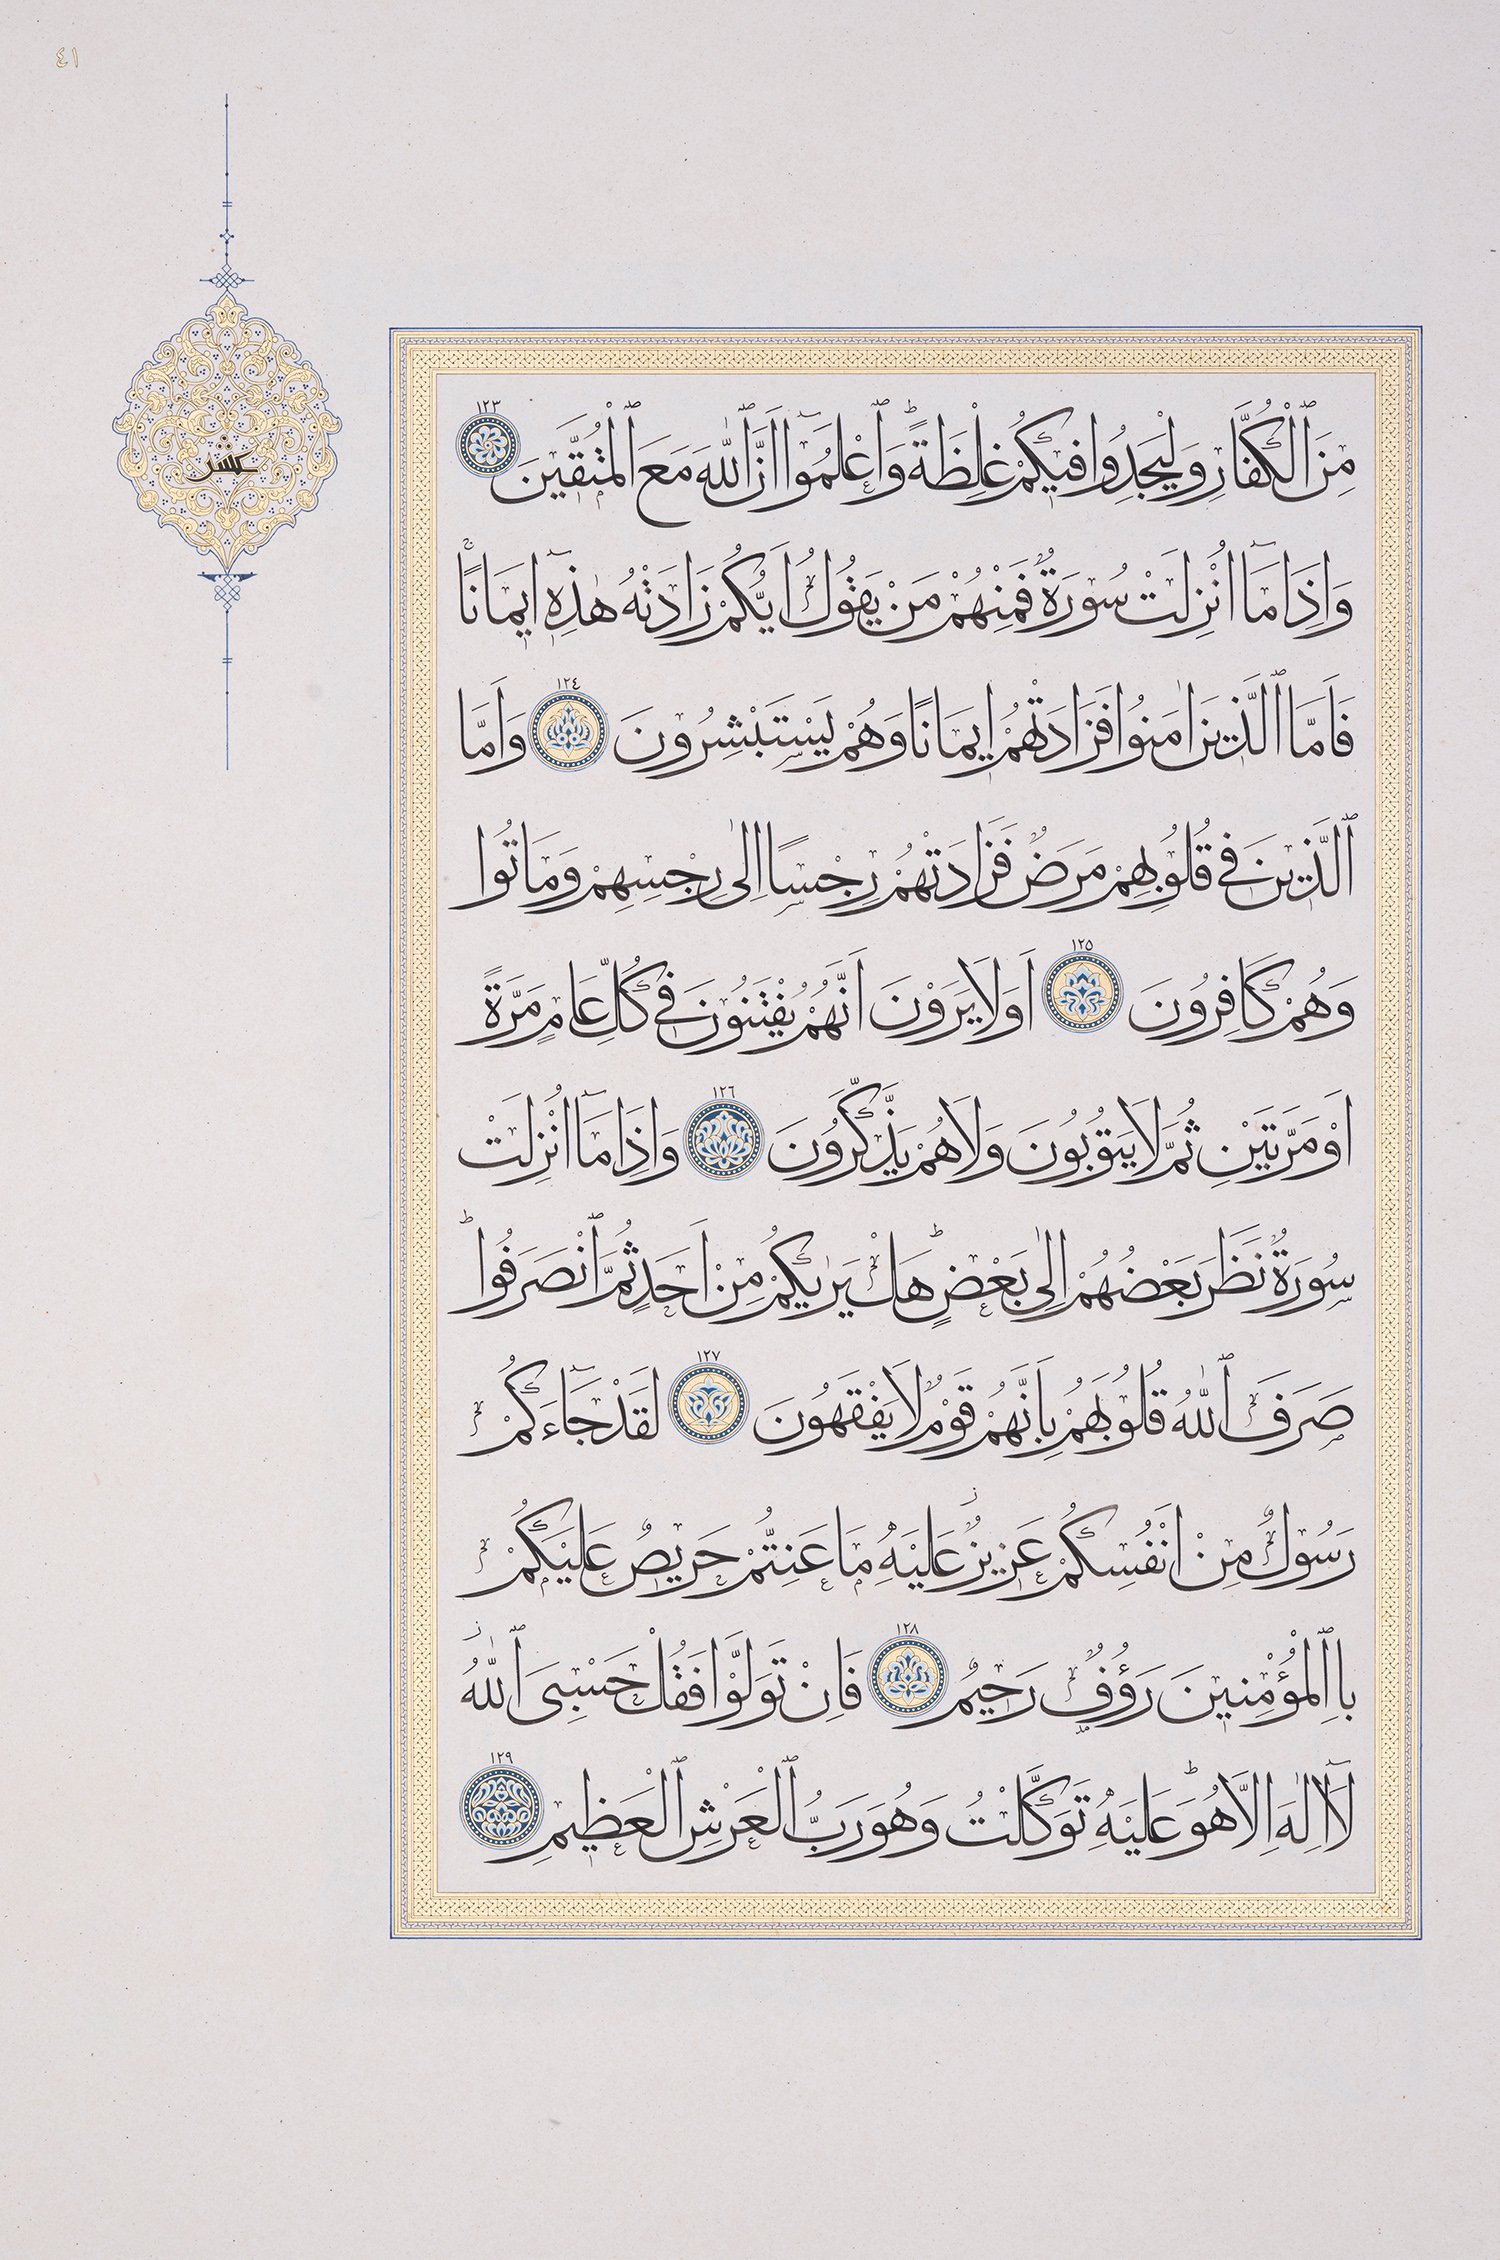 ٤١
عشر
مِنَ ٱلْكُفَّارِ وَلْيَجِدُوا فيكُمْ غِلْظَةً وَٱعْلَمُٓوا اَنَّ ٱللّٰهَ مَعَ ٱلْمُتَّقينَ ١٢٣
وَاِذَا مَٓا اُنْزِلَتْ سُورَةٌ فَمِنْهُمْ مَنْ يَقُولُ اَيُّكُمْ زَادَتْهُ هٰذِه۪ٓ ايمَانًا
فَاَمَّا ٱلَّذينَ اٰمَنُوا فَزَادَتْهُمْ ايمَانًا وَهُمْ يَسْتَبْشِرُونَ ١٢٤ وَاَمَّا
ٱلَّذينَ فى قُلُوبِهِمْ مَرَضٌ فَزَادَتْهُمْ رِجْسًا اِلٰى رِجْسِهِمْ وَمَاتُوا
وَهُمْ كَافِرُونَ ١٢٥ اَوَلَا يَرَوْنَ اَنَّهُمْ يُفْتَنُونَ فى كُلِّ عَامٍ مَرَّةً
اَوْ مَرَّتَيْنِ ثُمَّ لَا يَتُوبُونَ وَلَا هُمْ يَذَّكَّرُونَ ١٢٦ وَاِذَا مَٓا اُنْزِلَتْ
سُورَةٌ نَظَرَ بَعْضُهُمْ اِلٰى بَعْضٍ هَلْ يَرٰيكُمْ مِنْ اَحَدٍ ثُمَّ ٱنْصَرَفُوا
صَرَفَ ٱللّٰهُ قُلُوبَهُمْ بِاَنَّهُمْ قَوْمٌ لَا يَفْقَهُونَ ١٢٧ لَقَدْ جَٓاءَكُمْ
رَسُولٌ مِنْ اَنْفُسِكُمْ عَزيزٌ عَلَيْهِ مَا عَنِتُّمْ حَريصٌ عَلَيْكُمْ
بِاٱلْمُؤْمِنينَ رَؤُفٌ رَحيمٌ ١٢٨ فَاِنْ تَوَلَّوْا فَقُلْ حَسْبِىَ ٱللّٰهُ
لَٓا اِلٰهَ اِلَّا هُوَ عَلَيْهِ تَوَكَّلْتُ وَهُوَ رَبُّ ٱلْعَرْشِ ٱلْعَظيمِ ١٢٩